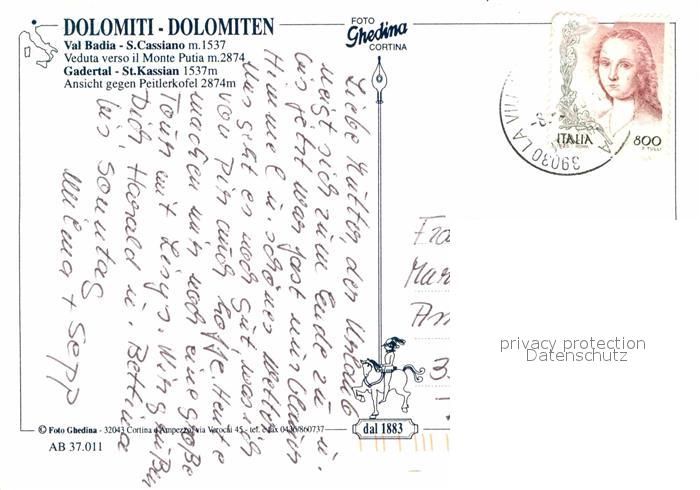 DOLOMITI - DOLOMITEN
Val Badia - S.Cassiano m.1537
Veduta verso il Monte Putia m.2874
Gadertal - St.Kassian 1537m
Ansicht gegen Peitlerkofel 2874m
FOTO
Ghedina
CORTINA
ITALIA
800
39030 LA
Liebe Mutter, der Urlaub
neigt sich zum Ende zu u.
bis jetzt war fast nur blauer
Himmel u. schönes Wetter
Uns geht es noch gut, was ich
von Dir auch hoffe. Heute
machen wir noch eine große
Tour mit Lisgs. Wir grüßen
Dich, Harald u. Bettina
bis Sonntag
+ Sepp
Fra
Mar
Am
3.
privacy protection
Datenschutz
dal 1883
© Foto Ghedina - 32043 Cortina d'Ampezzo, via Verocai 45 - tel. e fax 0436/860737
AB 37.011